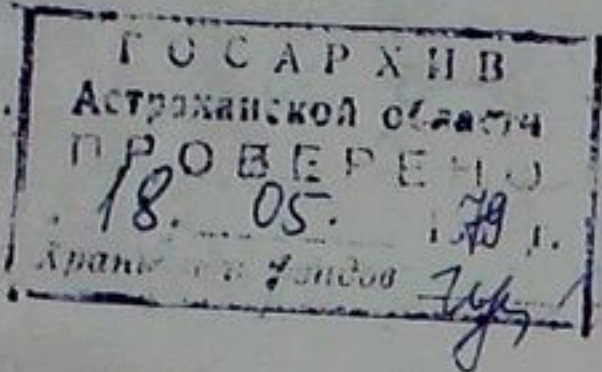 ГОСАРХИВ
Астраханской области
ПРОВЕРЕНО
18. 05. 1979 г.
Хранитель фондов